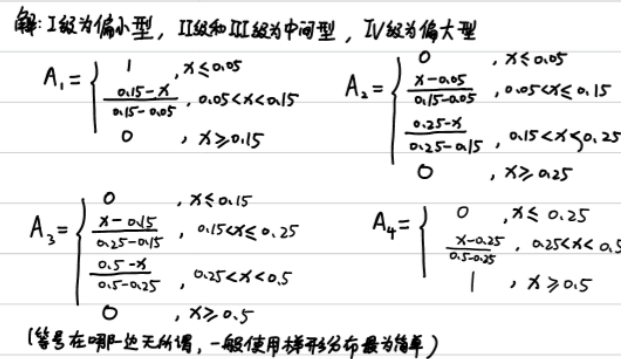 解: I级为偏小型, II级和III级为中间型, IV级为偏大型
A₁ = { 1 , x≤0.05
(0.15-x)/(0.15-0.05) , 0.05<x<0.15
0 , x≥0.15
A₂ = { 0 , x≤0.05
(x-0.05)/(0.15-0.05) , 0.05<x≤0.15
(0.25-x)/(0.25-0.15) , 0.15<x≤0.25
0 , x≥0.25
A₃ = { 0 , x≤0.15
(x-0.15)/(0.25-0.15) , 0.15<x≤0.25
(0.5-x)/(0.5-0.25) , 0.25<x<0.5
0 , x≥0.5
A₄ = { 0 , x≤0.25
(x-0.25)/(0.5-0.25) , 0.25<x<0.5
1 , x≥0.5
(等号在哪一边无所谓, 一般使用梯形分布最为简单)